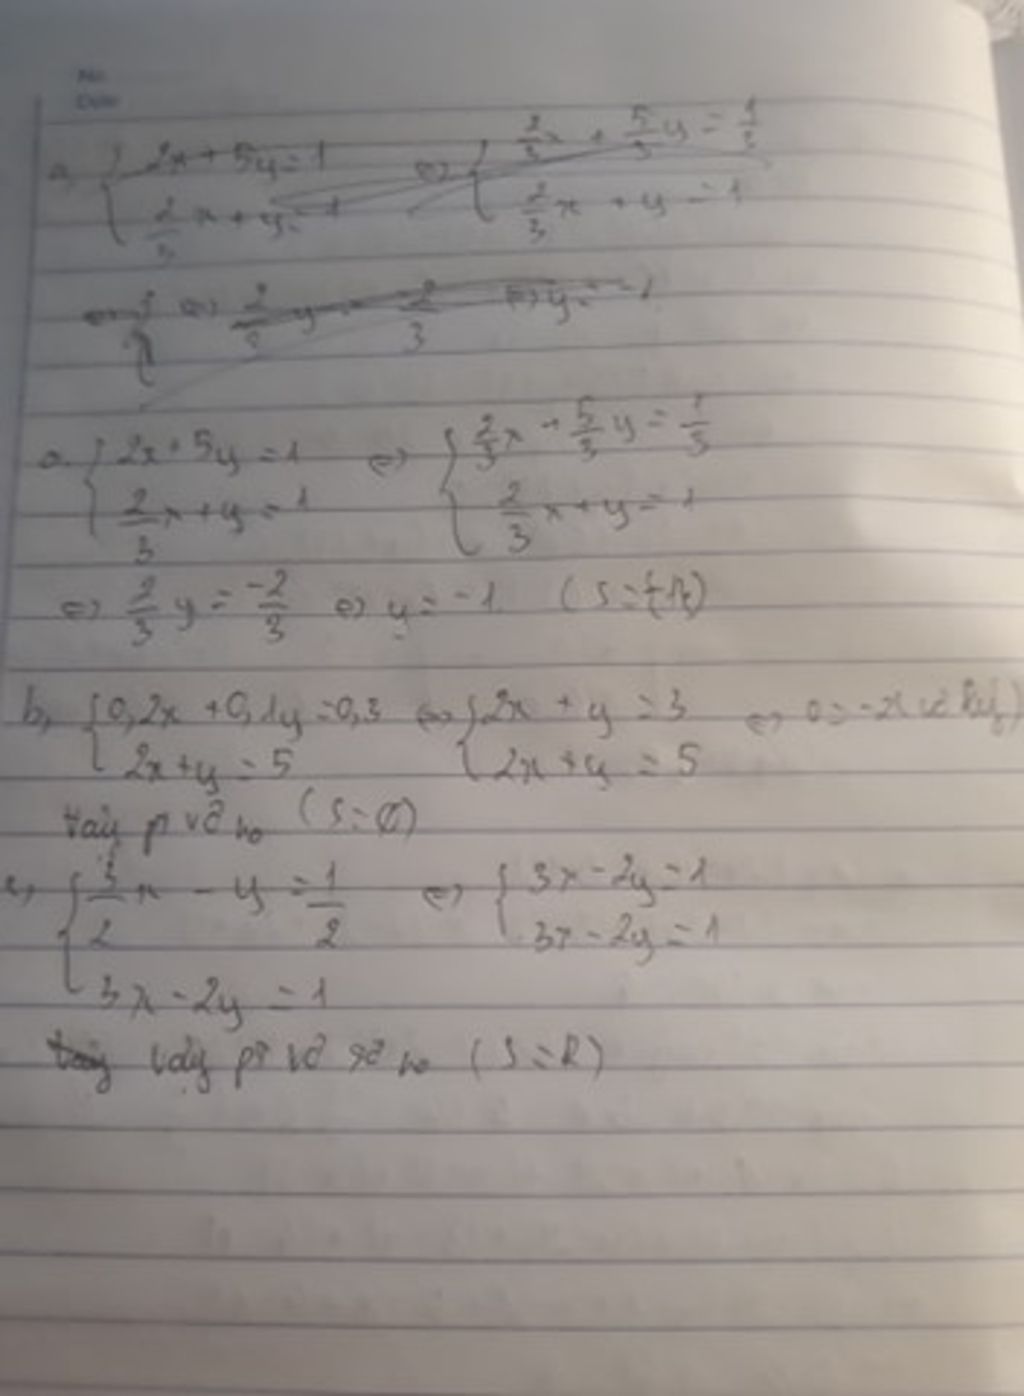 No.
Date
a, { 2x + 5y = 1 ⇔ { 2/3x + 5/3y = 1/3
2/3x + y = 1 2/3x + y = 1
⇔ 2/3 y = -2/3 ⇔ y = -1
a. { 2x + 5y = 1 ⇔ { 2/3x + 5/3y = 1/3
2/3x + y = 1 2/3x + y = 1
⇔ 2/3 y = -2/3 ⇔ y = -1 (S =
b, { 0,2x + 0,1y = 0,3 ⇔ { 2x + y = 3 ⇔ 0 = -2
2x + y = 5 2x + y = 5
vậy pt vô no (S = ∅)
c, { 3/2x - y = 1/2 ⇔ { 3x - 2y = 1
3x - 2y = 1
3x - 2y = 1
vậy pt vô số no (S = R)